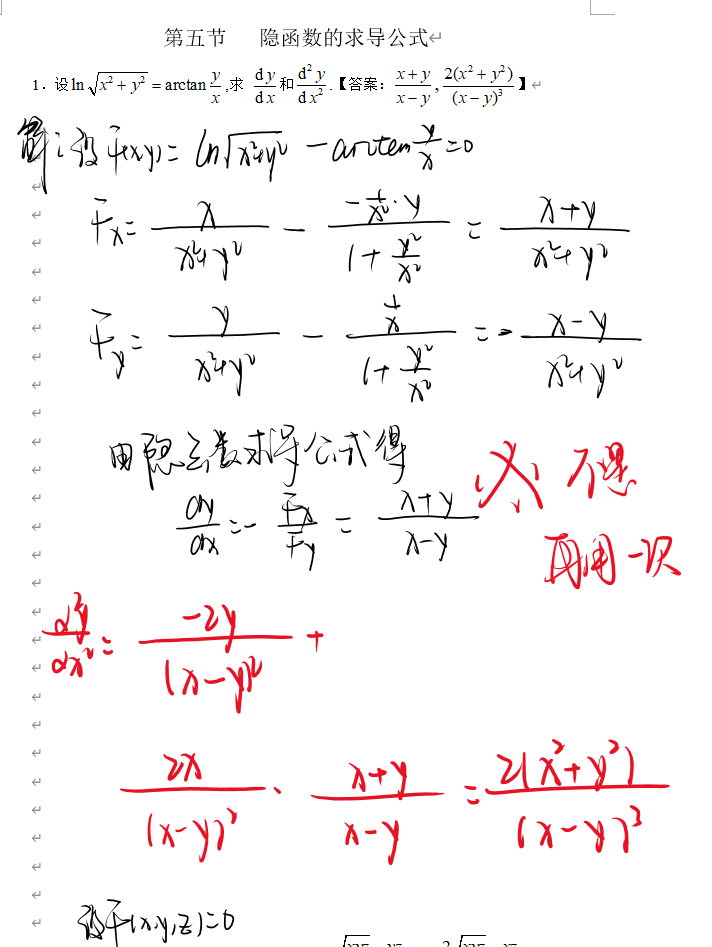 第五节 隐函数的求导公式
1. 设 ln√(x²+y²) = arctan y/x ,求 dy/dx 和 d²y/dx² .【答案: (x+y)/(x−y) , 2(x²+y²)/(x−y)³ 】
解:设F(x,y)= ln√(x²+y²) − arctan y/x =0
Fx= x/(x²+y²) − (−1/x²·y)/(1+y²/x²) = (x+y)/(x²+y²)
Fy= y/(x²+y²) − (1/x)/(1+y²/x²) = − (x−y)/(x²+y²)
由隐函数求导公式得
dy/dx =− Fx/Fy = (x+y)/(x−y)
不是
再用一次
d²y/dx² = −2y/(x−y)² +
2x/(x−y)² · (x+y)/(x−y) = 2(x²+y²)/(x−y)³
设F(x,y,z)=0